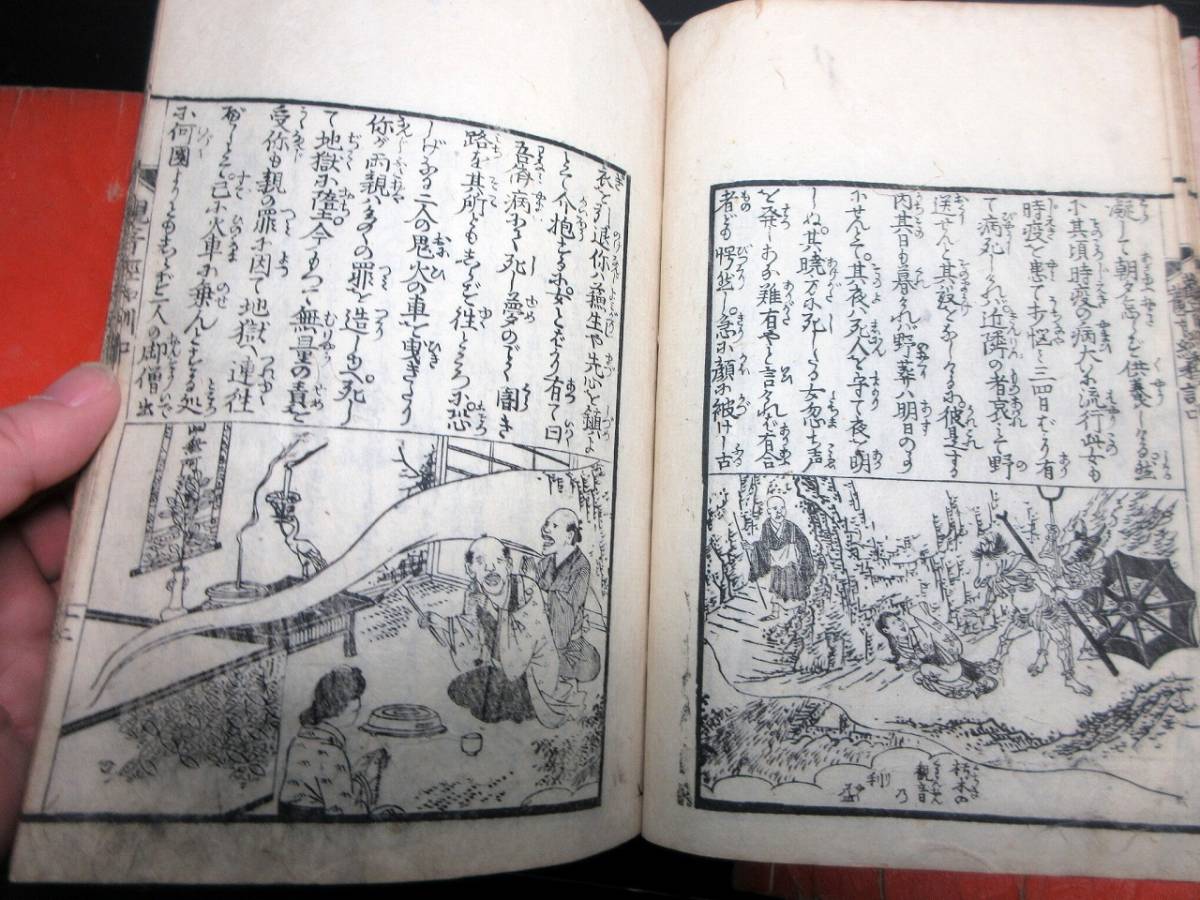 凝して朝夕怠らず供養しける然
に其頃時疫の病大に流行此女も
時疫を患て少悩こと三四日ばかり有
て病死しければ近隣の者哀みて野
送せんと其設をなしけるに彼是する
内其日も暮ければ野葬ハ明日のことに
にせんとて其夜ハ死人を守て夜を明
しぬ其暁方に死したる女忽ち声
を発しあな難有やと言ければ有合
者ども愕然し急に顔に被けし古
衣を引退你ハ蘇生や先心を鎮よ
とて介抱するに女しばかり有て曰
吾儕病おもく死し夢のごとく闇き
路を其所ともしらず往ところに恐
しげなる二人の鬼火の車を曳きたり
你が両親ハ多くの罪を造しゆへ死し
て地獄に堕今もつて無量の責を
受你も親の罪に因て地獄へ連往
なりとて已に火車に乗んとする処
に何國よりともしらず一人の御僧出
朽木の
観世音
利
乃
益
観音經和訓